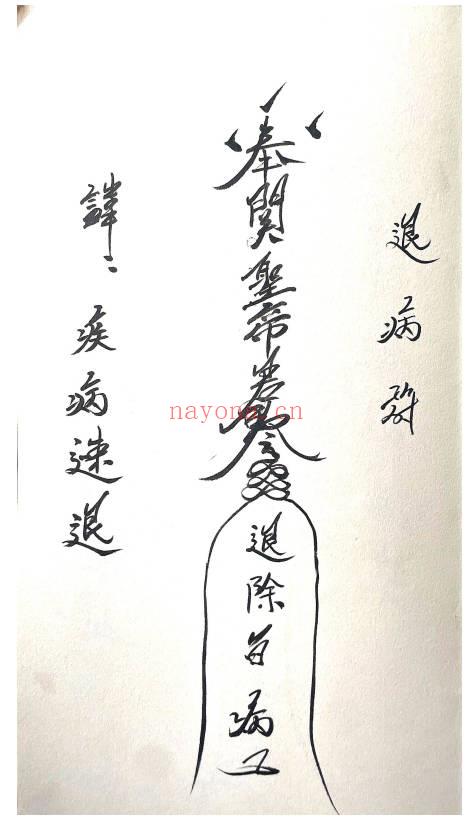 退病符
奉関聖帝君令
退除百病
諱：疾病速退
nayona.cn